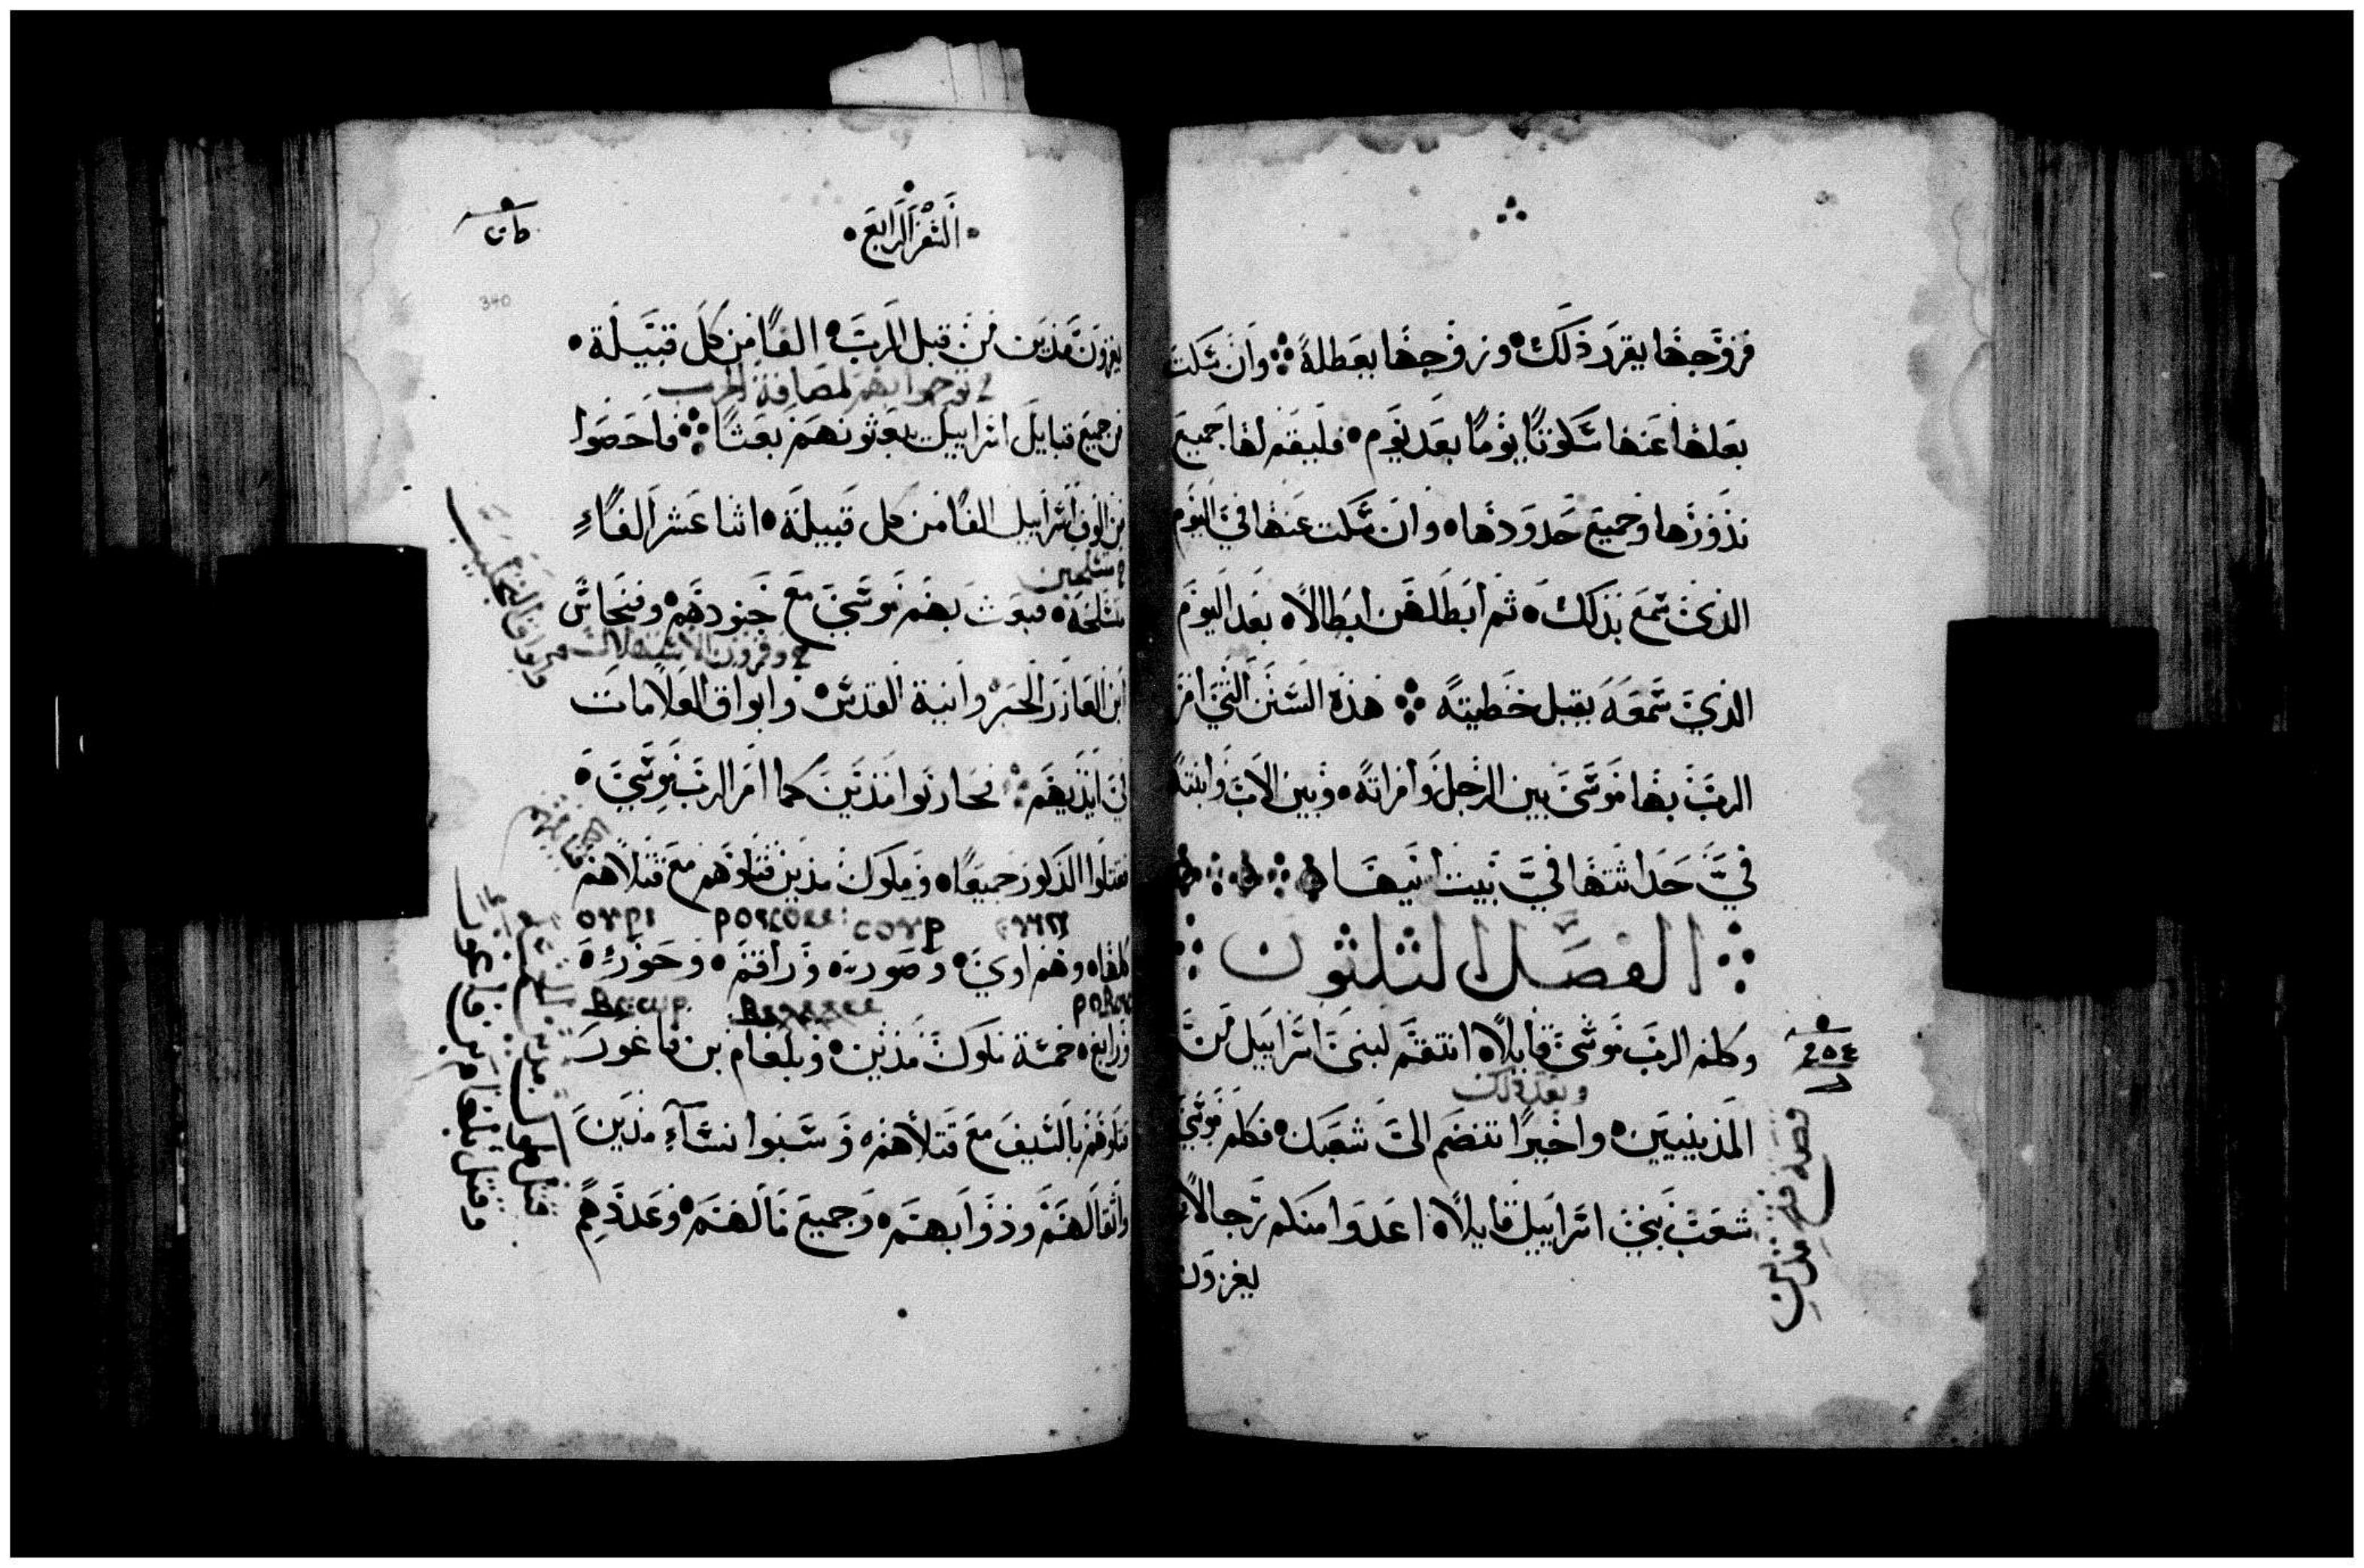 فزوجها يقرر ذلك وزوجها يعطله وان سكت
بعلها عنها سكوتا يوما بعد يوم فليقم لها جميع
نذورها وجميع حدودها وان سكت عنها في اليوم
الذي سمع بذلك ثم ابطلهن ابطالا بعد اليوم
الذي سمعه يقبل خطيته هذه السنن التي امر
الرب بها موسى بين الرجل وامراته وبين الاب وابنته
في حداثتها في بيت ابيها
الفصل الثلثون
وكلم الرب موسى قايلا انتقم لبني اسراييل من
وبعد ذلك
المدينيين واخيرا تنضم الى شعبك فكلم موسى
شعب بني اسراييل قايلا اعدوا منكم رجالا
يغزون
قصة فتح مدين
السفر الرابع
340
يغزون مدين من قبل الرب الفا من كل قبيلة
من جميع قبايل اسراييل يبعثونهم بعثا فاحصوا
من الوف اسراييل الفا من كل قبيلة اثنا عشر الفا
متسلحين
متسلحة فبعث بهم موسى مع جنودهم وفنحاس
ابن العازر الحبر وانية القدس وابواق العلامات
في ايديهم فحاربوا مدين كما امر الرب موسى
فقتلوا الذكور جميعا وملوك مدين قتلوهم مع قتلاهم
كلها وهم اوي وصور وراقم وحور
ورابع خمسة ملوك مدين وبلعام بن فاعور
قتلوهم بالسيف مع قتلاهم وسبوا نساء مدين
واثقالهم ودوابهم وجميع مالهم وعددهم
وقتل بلعام بن فاعور